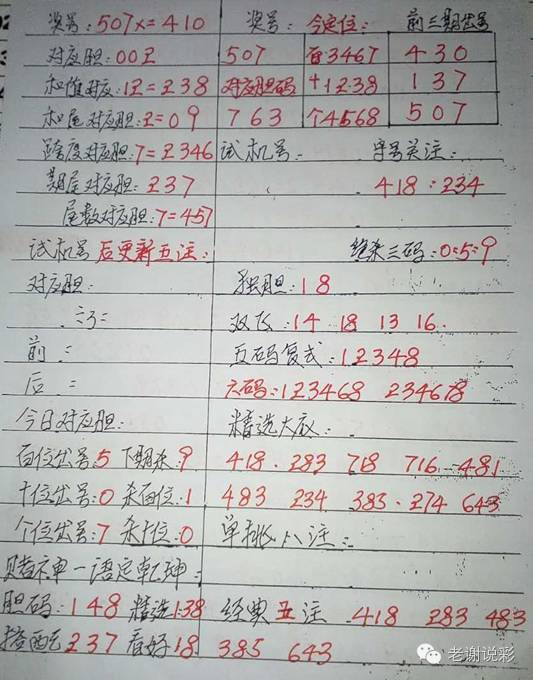 奖号:507x=410 奖号: 今定位: 前三期出号
对应胆:002 507 百3467 430
和值对应:12=238 对应胆码 十1238 137
和尾对应胆:2=09 763 个4568 507
跨度对应胆:7=2346 试机号: 字号关注:
期尾对应胆:237 418:234
尾数对应胆:7=457
试机号后更新五注: 绝杀三码:0:5:9
对应胆: 独胆:18
双飞:14 18 13 16.
前:= 五码复式:12348
后:= 六码:123468 234678
今日对应胆: 精选大底:
百位出号:5 下期杀:9 418. 283 718 716 481
十位出号:0 杀百位:1 483 234 383. 274 643
个位出号:7 杀十位:0 单挑八注:
赌神一语定乾坤:
胆码:148 精选138 经典五注 .418 283 483
搭配237 看好18 385 643
老谢说彩